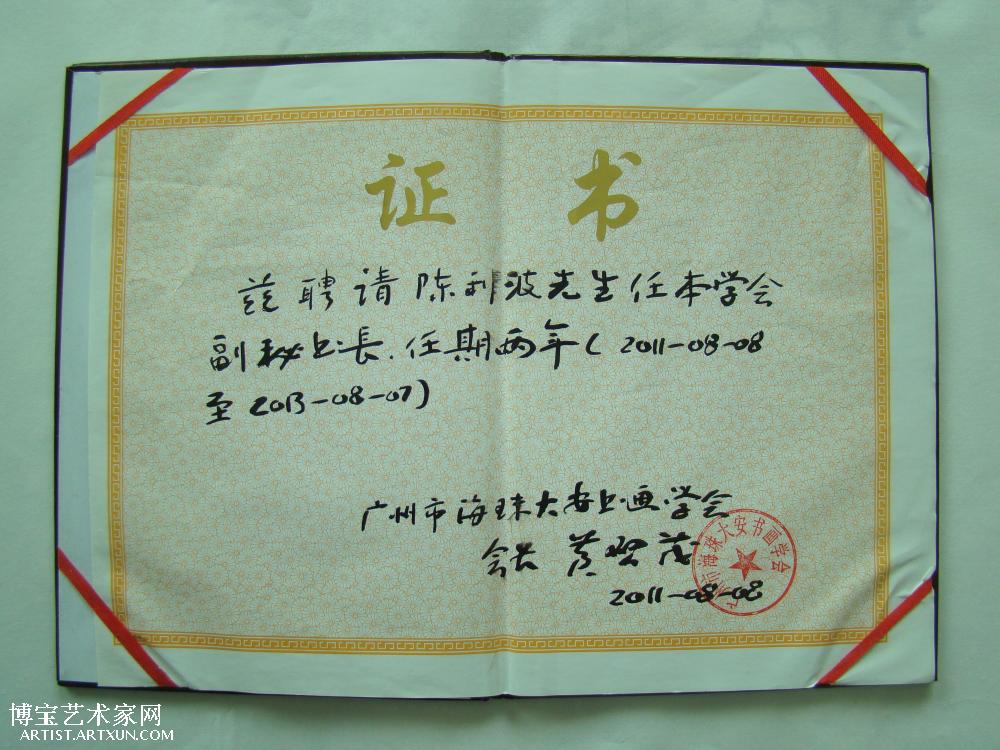 证书
兹聘请陈利波先生任本学会
副秘书长.任期两年(2011-08-08
至2013-08-07)
广州市海珠大安书画学会
会长 黄贺茂
2011-08-08
广州市海珠大安书画学会
博宝艺术家网
ARTIST.ARTXUN.COM